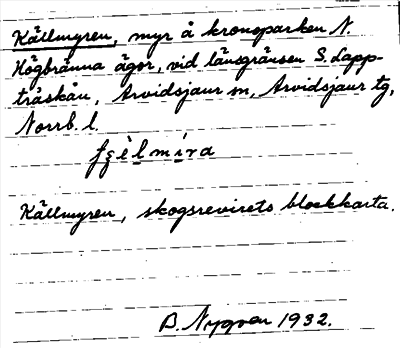 Källmyren, myr å kronoparken N.
Högbränna ägor, vid länsgränsen S. Lapp-
träskån, Arvidsjaur sn, Arvidsjaur tg,
Norrb. l.
Källmyren, skogsrevirets blockkarta.
B. Nygren 1932.